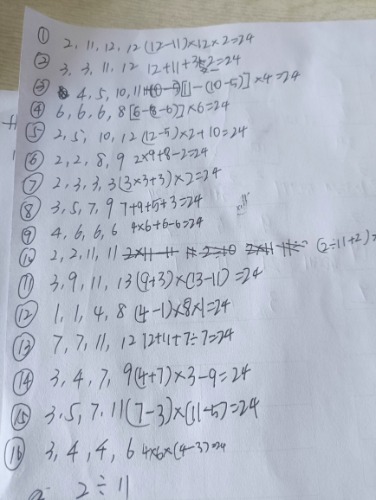 ① 2, 11, 12, 12 (12-11)×12×2=24
② 3, 3, 11, 12 12+11+3÷3=24
③ 4, 5, 10, 11 [11-(10-5)]×4=24
④ 6, 6, 6, 8 [6-(8-6)]×6=24
⑤ 2, 5, 10, 12 (12-5)×2+10=24
⑥ 2, 2, 8, 9 2×9+8-2=24
⑦ 2, 3, 3, 3 (3×3+3)×2=24
⑧ 3, 5, 7, 9 7+9+5+3=24
⑨ 4, 6, 6, 6 4×6+6-6=24
⑩ 2, 2, 11, 11 (2÷11+2)×
⑪ 3, 9, 11, 13 (9+3)×(13-11)=24
⑫ 1, 1, 4, 8 (4-1)×8×1=24
⑬ 7, 7, 11, 12 12+11+7÷7=24
⑭ 3, 4, 7, 9 (4+7)×3-9=24
⑮ 3, 5, 7, 11 (7-3)×(11-5)=24
⑯ 3, 4, 4, 6 4×6×(4-3)=24
2÷11